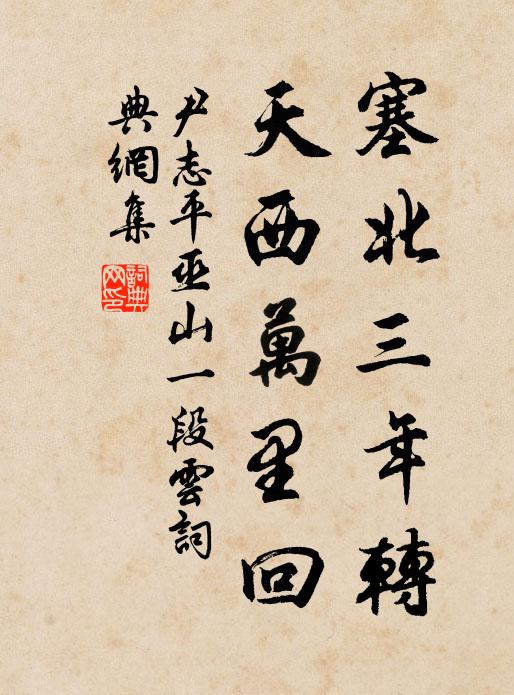 塞北三年轉
天西萬里回
尹志平巫山一段雲詞
典網集
詞典網印